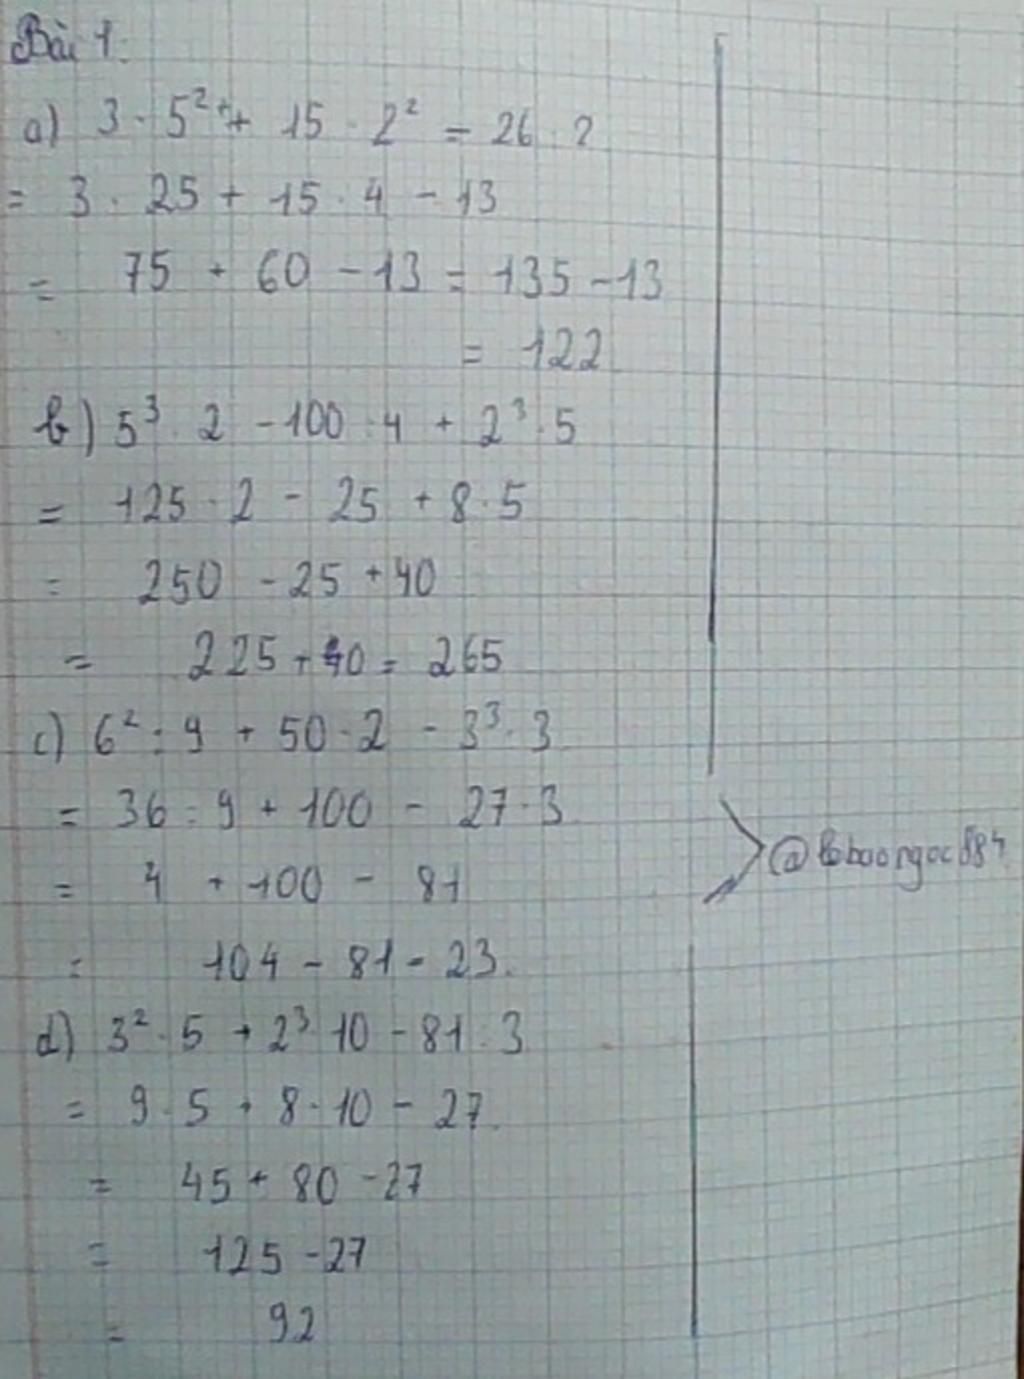 Bài 1:
a) 3 · 5² + 15 · 2² - 26 : 2
= 3 · 25 + 15 · 4 - 13
= 75 + 60 - 13 = 135 - 13
= 122
b) 5³ · 2 - 100 : 4 + 2³ · 5
= 125 · 2 - 25 + 8 · 5
= 250 - 25 + 40
= 225 + 40 = 265
c) 6² : 9 + 50 · 2 - 3³ · 3
= 36 : 9 + 100 - 27 · 3
= 4 + 100 - 81
= 104 - 81 = 23.
d) 3² · 5 + 2³ · 10 - 81 : 3
= 9 · 5 + 8 · 10 - 27
= 45 + 80 - 27
= 125 - 27
= 92